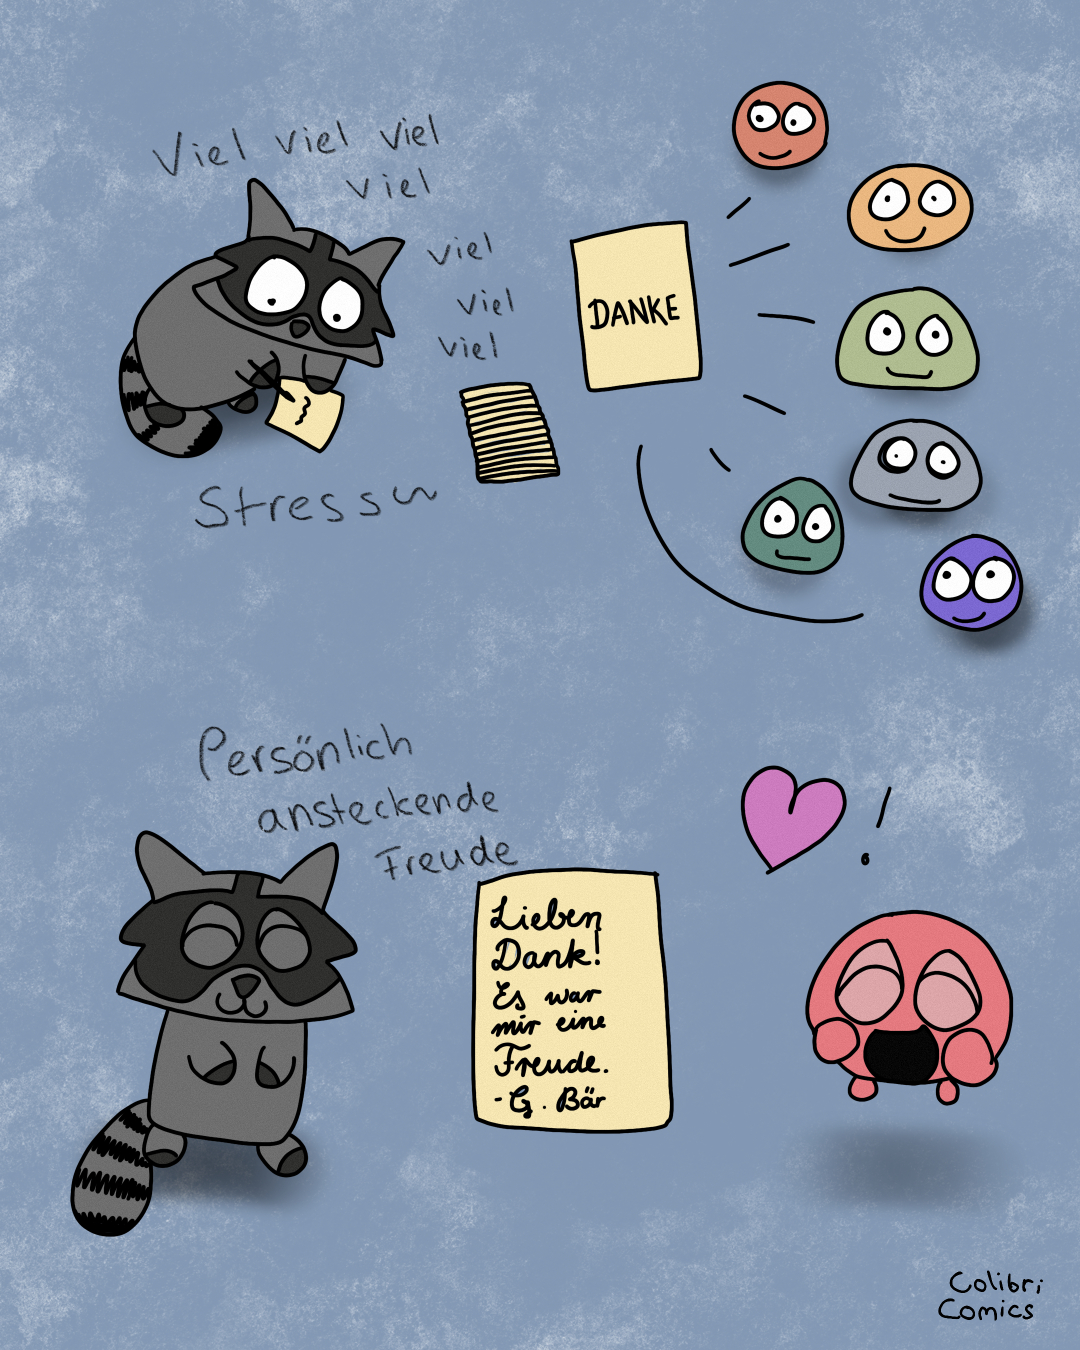 Viel viel viel
viel
viel
viel
viel
DANKE
Stress
Persönlich
ansteckende
Freude
Lieben
Dank!
Es war
mir eine
Freude.
- G. Bär
!
Colibri
Comics